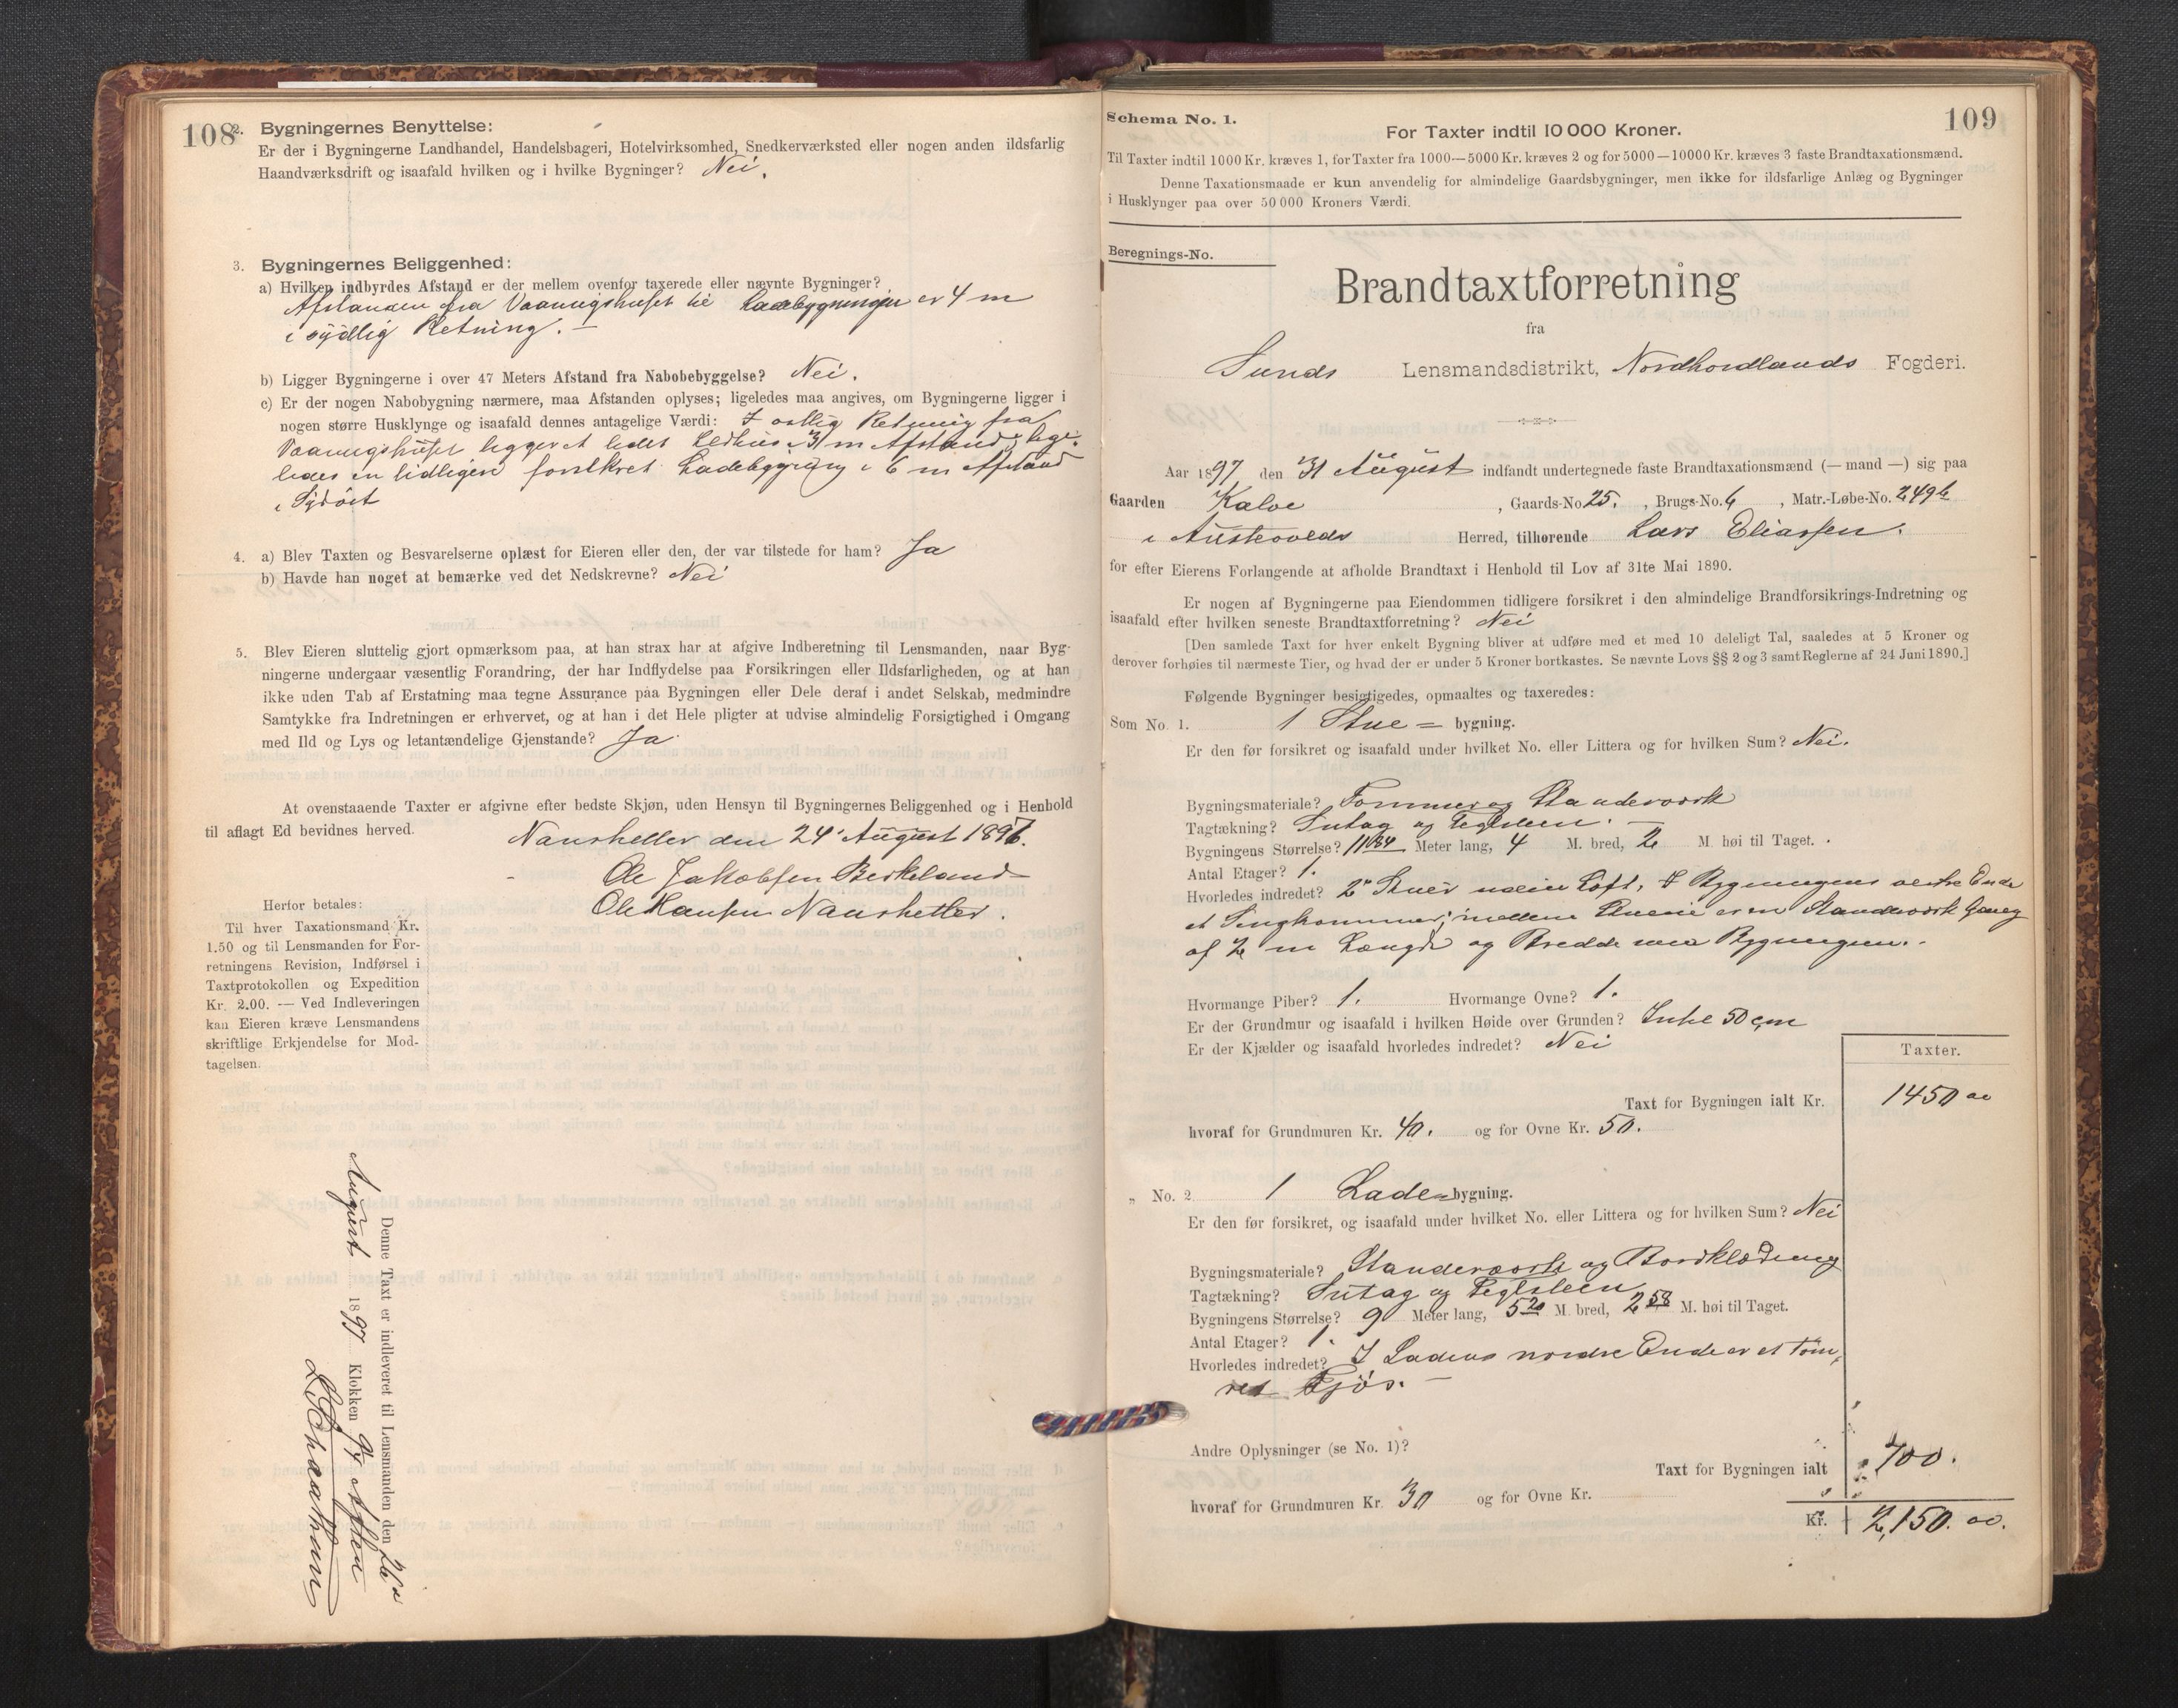 108
2. Bygningernes Benyttelse:
Er der i Bygningerne Landhandel, Handelsbageri, Hotelvirksomhed, Snedkerværksted eller nogen anden ildsfarlig
Haandværksdrift og isaafald hvilken og i hvilke Bygninger? Nei.
3. Bygningernes Beliggenhed:
a) Hvilken indbyrdes Afstand er der mellem ovenfor taxerede eller nævnte Bygninger?
Afstanden fra Vaaningshuset til Ladebygningen er 4 m
i sydlig Retning. —
b) Ligger Bygningerne i over 47 Meters Afstand fra Nabobebyggelse? Nei.
c) Er der nogen Nabobygning nærmere, maa Afstanden oplyses; ligeledes maa angives, om Bygningerne ligger i
nogen større Husklynge og isaafald dennes antagelige Værdi: I østlig Retning fra
Vaaningshuset ligger et lidet Ildhus i 31 m Afstand, lige-
ledes en tidligere forsikret Ladebygning i 6 m Afstand
i Sydøst
4. a) Blev Taxten og Besvarelserne oplæst for Eieren eller den, der var tilstede for ham? Ja
b) Havde han noget at bemærke ved det Nedskrevne? Nei
5. Blev Eieren sluttelig gjort opmærksom paa, at han strax har at afgive Indberetning til Lensmanden, naar Byg-
ningerne undergaar væsentlig Forandring, der har Indflydelse paa Forsikringen eller Ildsfarligheden, og at han
ikke uden Tab af Erstatning maa tegne Assurance paa Bygningen eller Dele deraf i andet Selskab, medmindre
Samtykke fra Indretningen er erhvervet, og at han i det Hele pligter at udvise almindelig Forsigtighed i Omgang
med Ild og Lys og letantændelige Gjenstande? Ja.
At ovenstaaende Taxter er afgivne efter bedste Skjøn, uden Hensyn til Bygningernes Beliggenhed og i Henhold
til aflagt Ed bevidnes herved.
Naushetler den 24 August 1897.
Ole Jakobsen Birkeland
Ole Hansen Naushetler.
Herfor betales:
Til hver Taxationsmand Kr.
1.50 og til Lensmanden for For-
retningens Revision, Indførsel i
Taxtprotokollen og Expedition
Kr. 2.00. — Ved Indleveringen
kan Eieren kræve Lensmandens
skriftlige Erkjendelse for Mod-
tagelsen.
Denne Taxt er indleveret til Lensmanden den 26
August 1897 Klokken 9 Aften
109
Schema No. 1.
For Taxter indtil 10 000 Kroner.
Til Taxter indtil 1000 Kr. kræves 1, for Taxter fra 1000—5000 Kr. kræves 2 og for 5000—10000 Kr. kræves 3 faste Brandtaxationsmænd.
Denne Taxationsmaade er kun anvendelig for almindelige Gaardsbygninger, men ikke for ildsfarlige Anlæg og Bygninger
i Husklynger paa over 50 000 Kroners Værdi.
Beregnings-No.
Brandtaxtforretning
fra
Sunds Lensmandsdistrikt, Nordhordlands Fogderi.
Aar 1897 den 31 August indfandt undertegnede faste Brandtaxationsmænd (— mand —) sig paa
Gaarden Kalve , Gaards-No 25. , Brugs-No. 6 , Matr.-Løbe-No. 249 b
i Austevolds Herred, tilhørende Lars Eliassen.
for efter Eierens Forlangende at afholde Brandtaxt i Henhold til Lov af 31te Mai 1890.
Er nogen af Bygningerne paa Eiendommen tidligere forsikret i den almindelige Brandforsikrings-Indretning og
isaafald efter hvilken seneste Brandtaxtforretning? Nei
[Den samlede Taxt for hver enkelt Bygning bliver at udføre med et med 10 deleligt Tal, saaledes at 5 Kroner og
derover forhøies til nærmeste Tier, og hvad der er under 5 Kroner bortkastes. Se nævnte Lovs §§ 2 og 3 samt Reglerne af 24 Juni 1890.]
Følgende Bygninger besigtigedes, opmaaltes og taxeredes:
Som No. 1. 1 Stue = bygning.
Er den før forsikret og isaafald under hvilket No. eller Littera og for hvilken Sum? Nei.
Bygningsmateriale? Tømmer og Standerværk
Tagtækning? Sutag og Teglsten. —
Bygningens Størrelse? 11.34 Meter lang, 4 M. bred, 2 M. høi til Taget.
Antal Etager? 1.
Hvorledes indredet? 2de Stuer uden Loft, I Bygningens vestre Ende
et Sengkammer; mellem Stuene er en Standerværk Gang
af 2 m Længde og Bredde som Bygningen.
Hvormange Piber? 1. Hvormange Ovne? 1.
Er der Grundmur og isaafald i hvilken Høide over Grunden? Indtil 50 cm
Er der Kjælder og isaafald hvorledes indredet? Nei
Taxter.
Taxt for Bygningen ialt Kr. 1450 00
hvoraf for Grundmuren Kr. 40. og for Ovne Kr. 50.
„ No. 2. 1 Lade=bygning.
Er den før forsikret, og isaafald under hvilket No. eller Littera og for hvilken Sum? Nei
Bygningsmateriale? Standerværk og Bordklædning
Tagtækning? Sutag og Teglsten
Bygningens Størrelse? 9 Meter lang, 5 20 M. bred, 2 58 M. høi til Taget.
Antal Etager? 1.
Hvorledes indredet? I Ladens nordre Ende er et tøm-
ret Fjøs. —
Andre Oplysninger (se No. 1)?
Taxt for Bygningen ialt 700.
hvoraf for Grundmuren Kr. 30 og for Ovne Kr.
Kr. 2,150. 00.